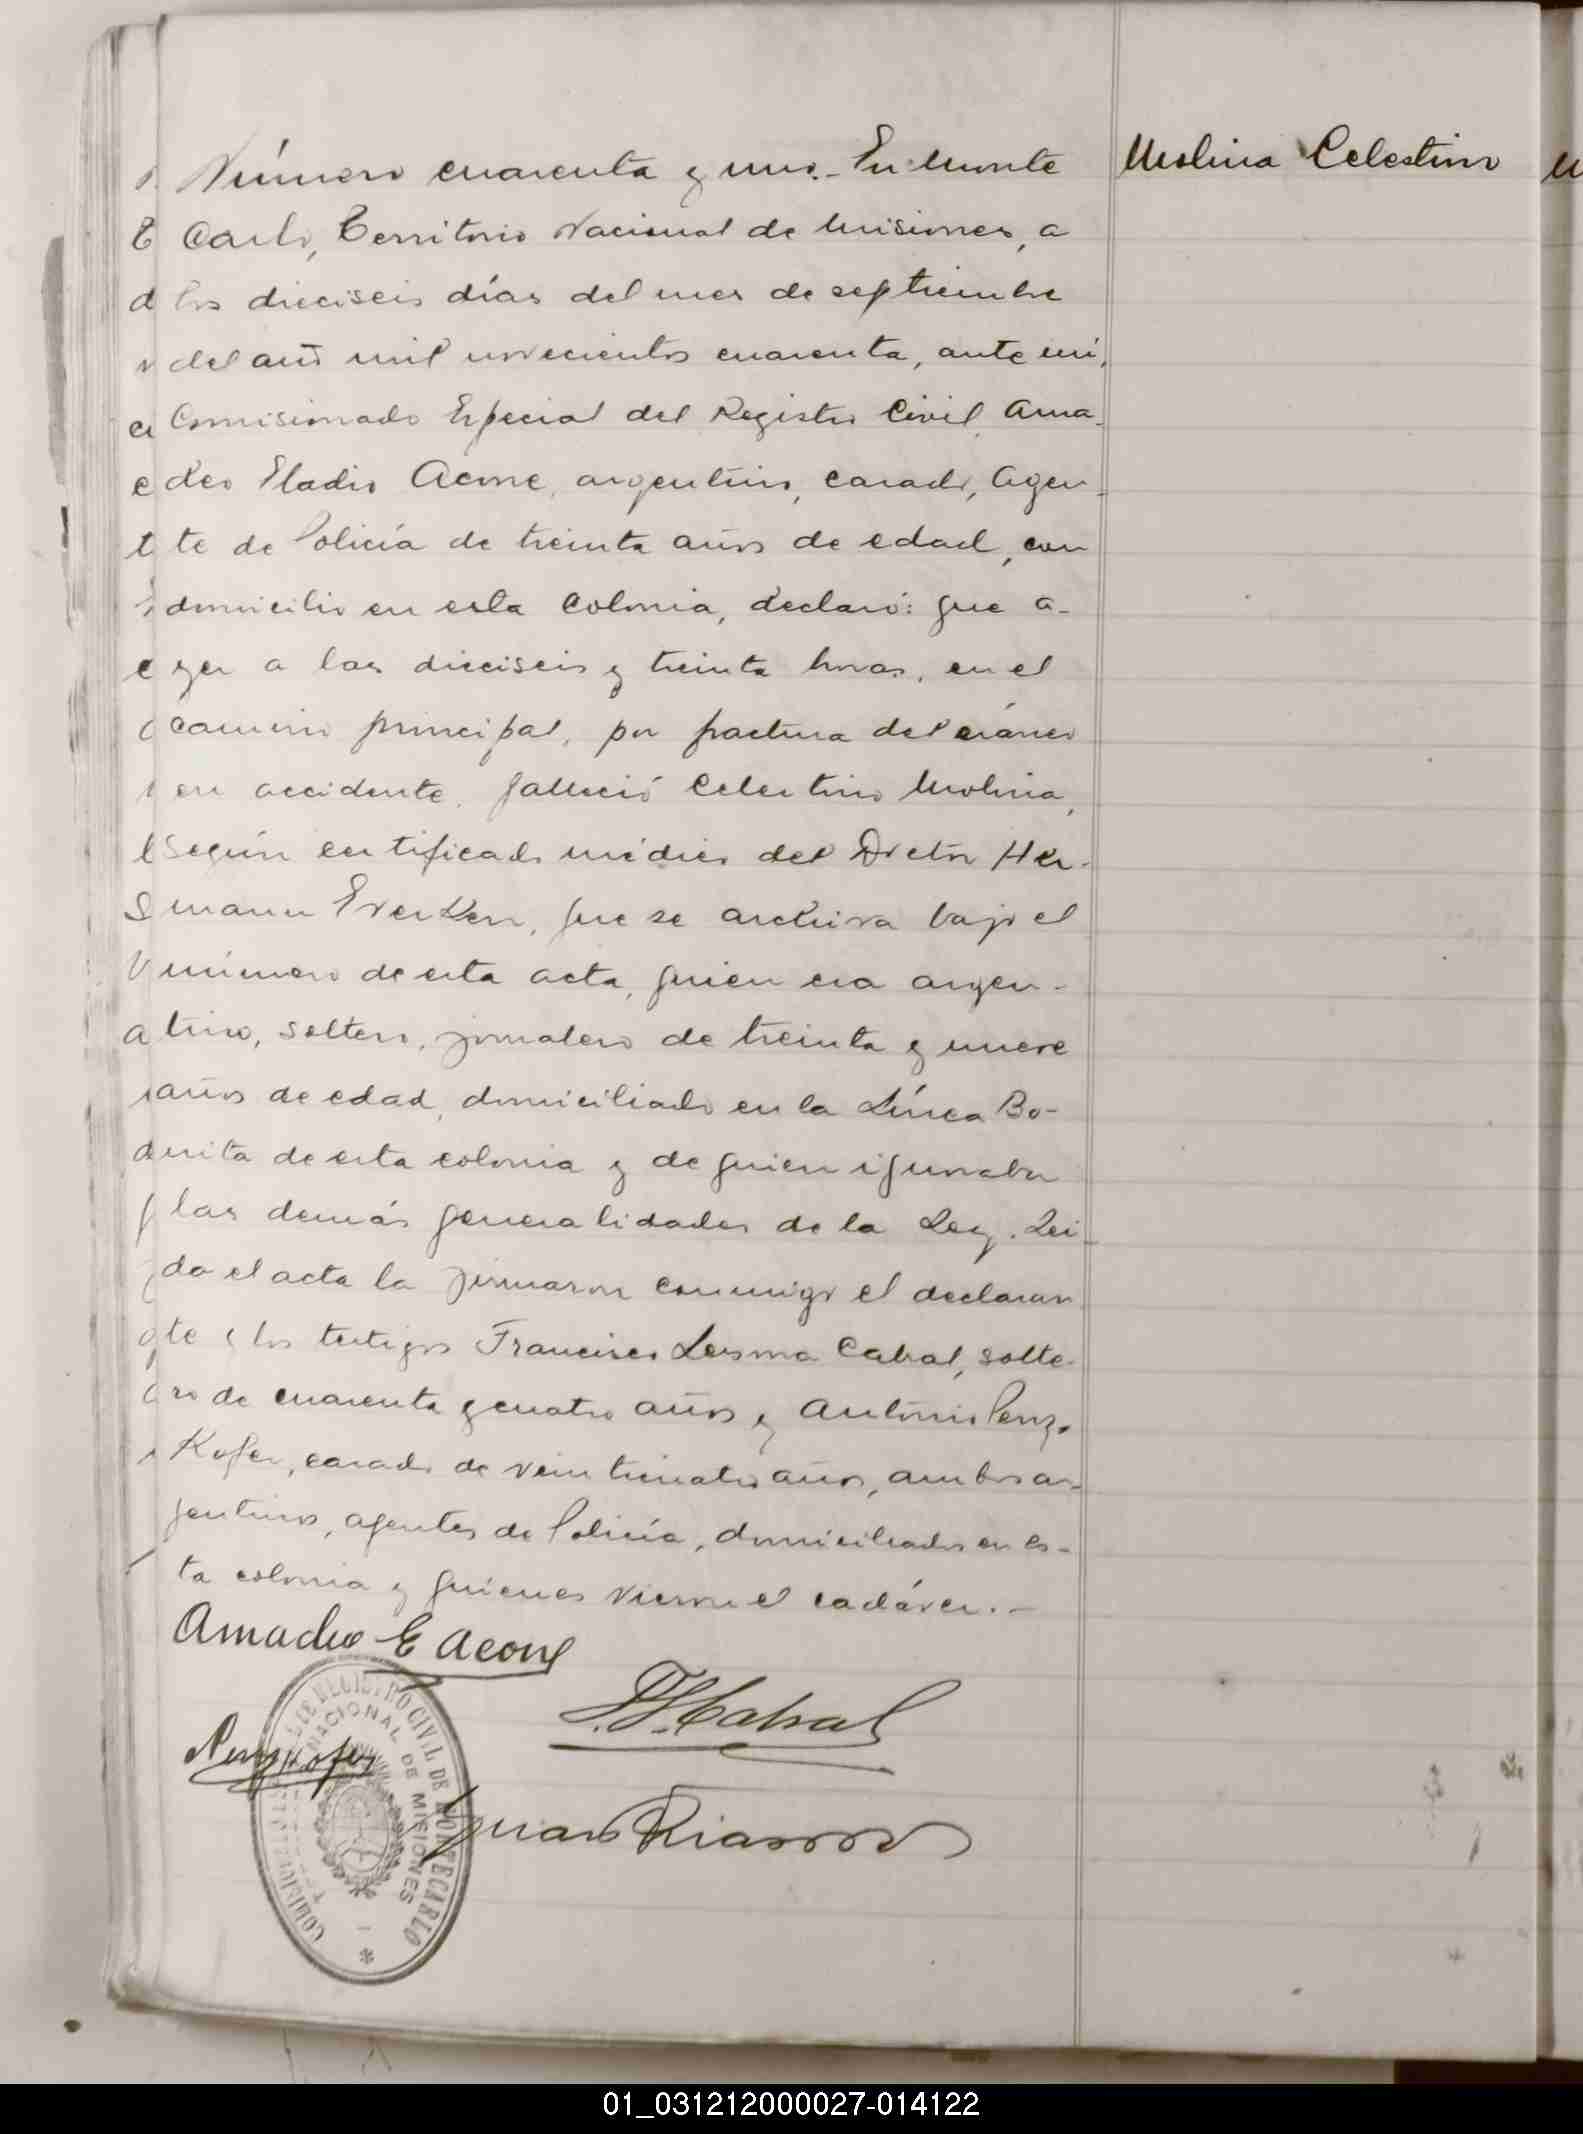 Número cuarenta y uno.- En Monte
Carlo, Territorio Nacional de Misiones, a
los dieciseis días del mes de septiembre
del año mil novecientos cuarenta, ante mí,
Comisionado Especial del Registro Civil, Ama-
deo Eladio Acone, argentino, casado, Agen-
te de Policía de treinta años de edad, con
domicilio en esta Colonia, declaró: que a-
yer a las dieciseis y treinta horas, en el
camino principal, por fractura del cráneo
en accidente, falleció Celestino Molina,
según certificado médico del Doctor Her-
mann Everken, que se archiva bajo el
número de esta acta, quien era argen-
tino, soltero, jornalero de treinta y nueve
años de edad, domiciliado en la Línea Bo-
nita de esta colonia y de quien ignoraba
las demás generalidades de la Ley. Leí-
da el acta la firmaron conmigo el declaran-
te y los testigos Francisco Lesma Cabral, solte-
ro de cuarenta y cuatro años y Antonio Penz-
Kofer, casado de veinticuatro años, ambos ar-
gentinos, agentes de Policía, domiciliados en es-
ta colonia y quienes vieron el cadáver.-
Amadeo E Acone
F. L. Cabral
Penzkofer
Juan
REGISTRO CIVIL DE MONTECARLO
NACIONAL DE MISIONES
Molina Celestino
01_031212000027-014122